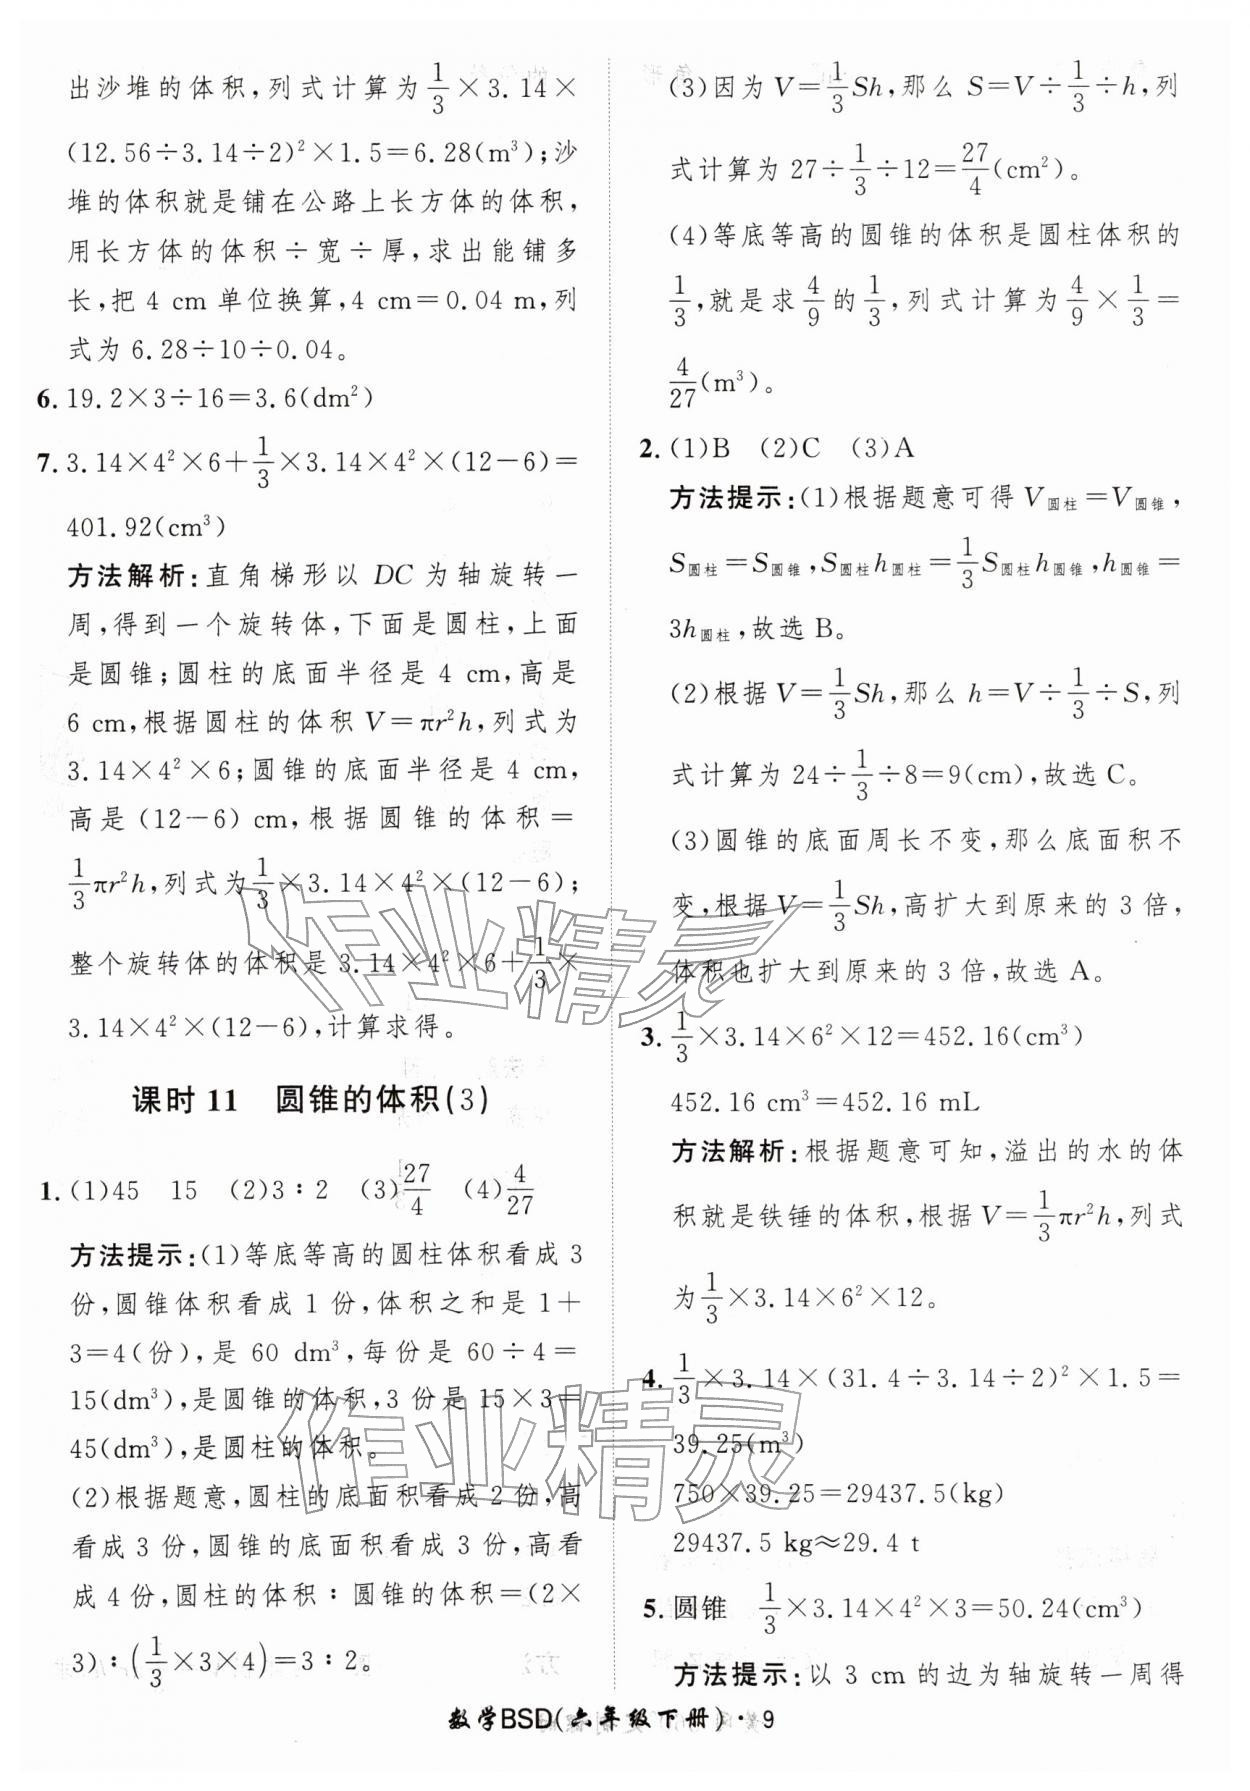 出沙堆的体积,列式计算为1/3×3.14×
(12.56÷3.14÷2)²×1.5=6.28(m³);沙
堆的体积就是铺在公路上长方体的体积,
用长方体的体积÷宽÷厚,求出能铺多
长,把 4 cm 单位换算,4 cm=0.04 m,列
式为 6.28÷10÷0.04。
6. 19.2×3÷16=3.6(dm²)
7. 3.14×4²×6+1/3×3.14×4²×(12-6)=
401.92(cm³)
方法解析:直角梯形以 DC 为轴旋转一
周,得到一个旋转体,下面是圆柱,上面
是圆锥;圆柱的底面半径是 4 cm,高是
6 cm,根据圆柱的体积 V=πr²h,列式为
3.14×4²×6;圆锥的底面半径是 4 cm,
高是(12-6) cm,根据圆锥的体积=
1/3πr²h,列式为1/3×3.14×4²×(12-6);
整个旋转体的体积是 3.14×4²×6+1/3×
3.14×4²×(12-6),计算求得。
课时 11 圆锥的体积(3)
1. (1)45 15 (2)3∶2 (3)27/4 (4)4/27
方法提示:(1)等底等高的圆柱体积看成 3
份,圆锥体积看成 1 份,体积之和是 1+
3=4(份),是 60 dm³,每份是 60÷4=
15(dm³),是圆锥的体积,3 份是 15×3=
45(dm³),是圆柱的体积。
(2)根据题意,圆柱的底面积看成 2 份,高
看成 3 份,圆锥的底面积看成 3 份,高看
成 4 份,圆柱的体积∶圆锥的体积=(2×
3)∶(1/3×3×4)=3∶2。
(3)因为 V=1/3Sh,那么 S=V÷1/3÷h,列
式计算为 27÷1/3÷12=27/4(cm²)。
(4)等底等高的圆锥的体积是圆柱体积的
1/3,就是求4/9的1/3,列式计算为4/9×1/3=
4/27(m³)。
2. (1)B (2)C (3)A
方法提示:(1)根据题意可得 V圆柱=V圆锥,
S圆柱=S圆锥,S圆柱h圆柱=1/3S圆柱h圆锥,h圆锥=
3h圆柱,故选 B。
(2)根据 V=1/3Sh,那么 h=V÷1/3÷S,列
式计算为 24÷1/3÷8=9(cm),故选 C。
(3)圆锥的底面周长不变,那么底面积不
变,根据 V=1/3Sh,高扩大到原来的 3 倍,
体积也扩大到原来的 3 倍,故选 A。
3. 1/3×3.14×6²×12=452.16(cm³)
452.16 cm³=452.16 mL
方法解析:根据题意可知,溢出的水的体
积就是铁锤的体积,根据 V=1/3πr²h,列式
为1/3×3.14×6²×12。
4. 1/3×3.14×(31.4÷3.14÷2)²×1.5=
39.25(m³)
750×39.25=29437.5(kg)
29437.5 kg≈29.4 t
5. 圆锥 1/3×3.14×4²×3=50.24(cm³)
方法提示:以 3 cm 的边为轴旋转一周得
数学BSD(六年级下册)·9
作业精灵
作业精灵